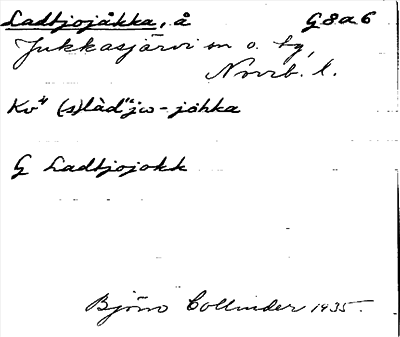 Ladtjojåkka, å G 8 a 6
Jukkasjärvi sn o. tg,
Norrb. l.
Kv" (s)làd"jω-jòhka
G Ladtjojokk
Björn Collinder 1935.